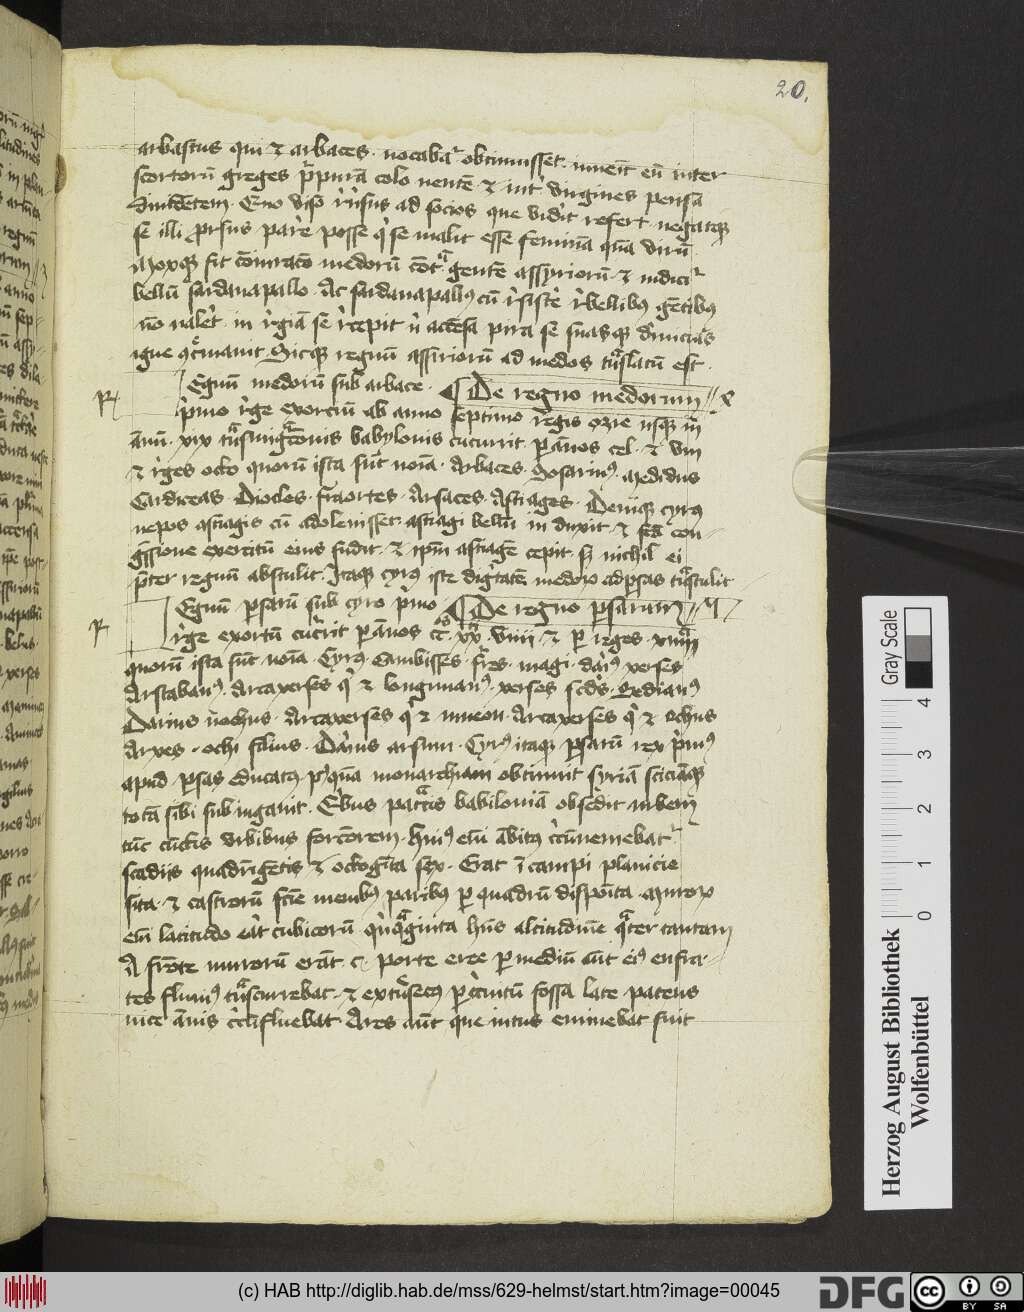 20.
arbastus qui et arbaces vocabat obtinuisset inuenit eum inter
scortorum greges purpuram colo nentem et inter virgines pensa
diuidentem. Quo viso reuersus ad socios que vidit refert negatque
se illi prorsus parere posse qui se malit esse feminam quam virum
Moxque fit coniuratio medorum contra gentem assyriorum et indicitur
bellum sardanapallo. Ac sardanapallus cum resistere rebellibus gentibus
non valeret in regiam se recepit et accensa pira se suasque diuicias
igne concremauit. Sicque regnum assiriorum ad medos translatum est.
R Egnum medorum sub arbace. De regno medorum x
primo rege exorcium ab anno septimo regis ozie usque in
annum xix transmigracionis babylonis cucurrit per annos ccl et viii
et reges octo quorum ista sunt nomina Arbaces. Sosarmus. Medidus
Cardiceas. Diocles. fraortes. Arsaces. Astiages. Denique cyrus
nepos astiagis cum adoleuisset astiagi bellum indixit et secunda con-
gressione exercitum eius fudit et ipsum astiagem cepit sed nichil ei
preter regnum abstulit. Itaque cyrus iste dignitatem medorum ad persas transtulit
R Egnum persarum sub cyro primo De regno persarum
rege exortum cucurrit per annos ccos xxx viiii et per reges xiiii
quorum ista sunt nomina. Cyrus. Cambisses. fratres. magi. darius xerses
Arstabanus. Artaxerses qui et longimanus. xerses secundus. Sedianus
Darius nochus. Artaxerses qui et mneon. Artaxerses qui et ochus
Arxes. ochi filius. Darius arsum. Cyrus itaque persarum rex primus
apud persas educatus postquam monarchiam obtinuit syriam sciciamque
totam sibi subiugauit. Quibus patratis babiloniam obsedit urbem
tunc cunctis vrbibus forciorem. Huius enim ambitus circumueniebatur
stadiis quadringentis et octoginta sex. Erat in campi planicie
sita et castrorum facie menibus paribus per quadrum disposita. Murorum
enim latitudo erat cubitorum quinquaginta huius altitudine quater tantam
A fronte murorum erant c. porte eree per medium aut eius eufra-
tes fluuius transcurrebat et extrinsecus per circuitum fossa late patens
vice amnis circumfluebat. Ares aut que intus eminebat fuit
Gray Scale
0 1 2 3 4
Herzog August Bibliothek
Wolfenbüttel
(c) HAB http://diglib.hab.de/mss/629-helmst/start.htm?image=00045
DFG
cc
BY SA